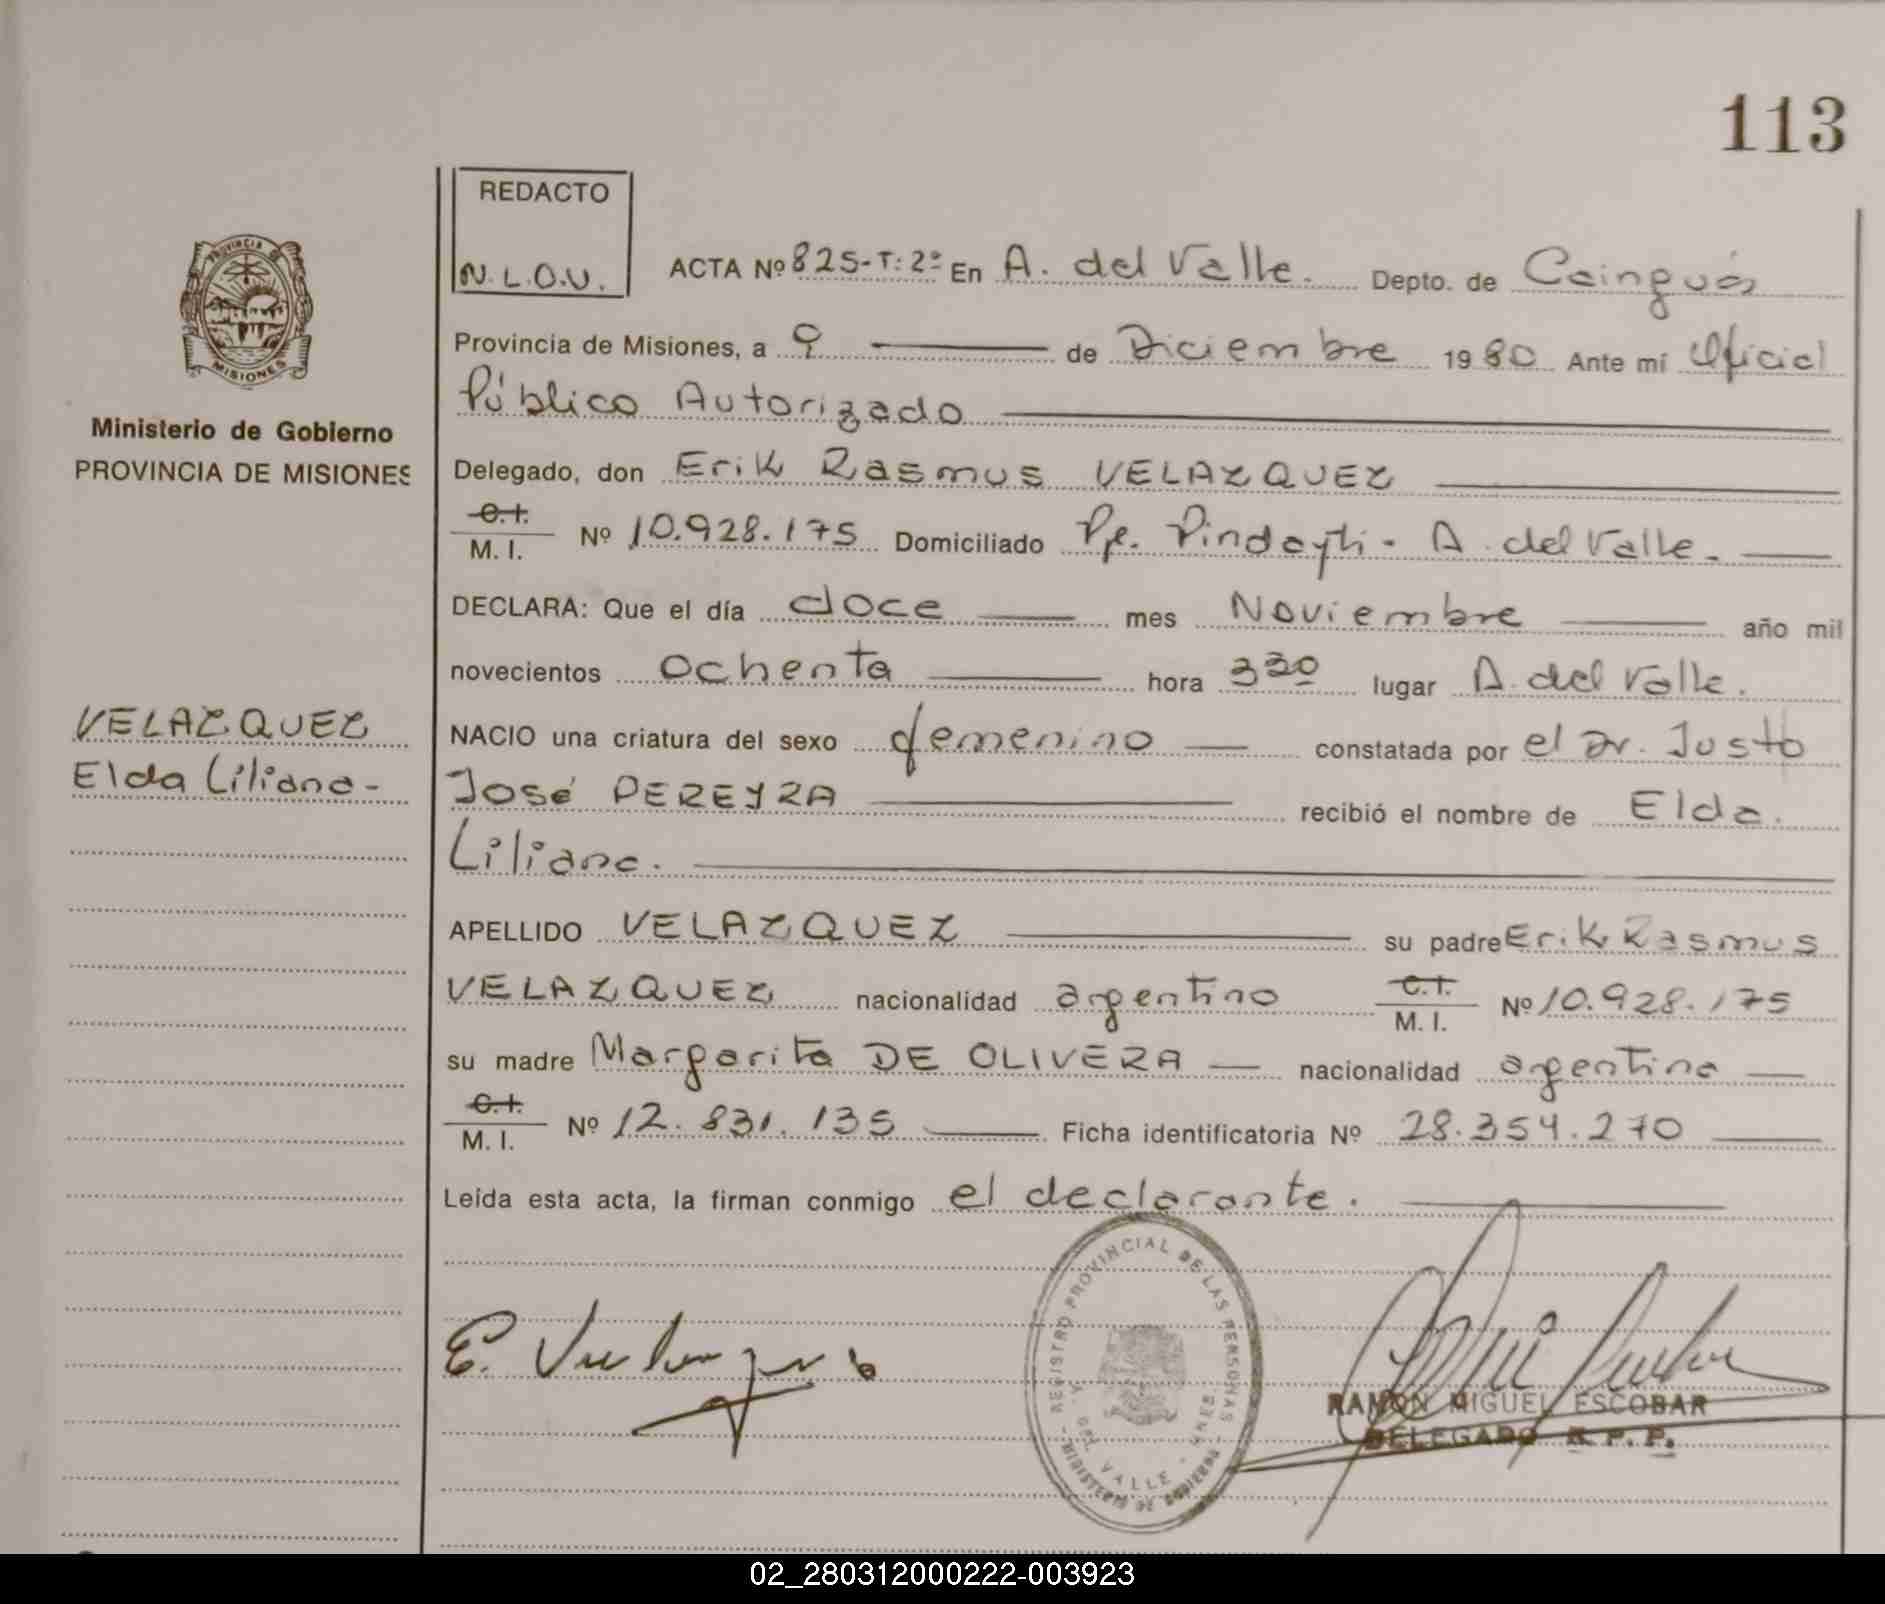 113
REDACTO
N.L.O.V.
ACTA Nº 825-T:2º En A. del Valle. Depto. de Cainguás
PROVINCIA DE
MISIONES
Provincia de Misiones, a 9 de Diciembre 1980 Ante mí Oficial
Público Autorizado
Ministerio de Gobierno
PROVINCIA DE MISIONES
Delegado, don Erik Rasmus VELAZQUEZ
C.I.
M. I. Nº 10.928.175 Domiciliado Pje. Pindayti - A. del Valle.
DECLARA: Que el día doce mes Noviembre año mil
novecientos ochenta hora 3 30 lugar A. del Valle.
VELAZQUEZ
Elda Liliana-
NACIO una criatura del sexo femenino constatada por el Dr. Justo
José PEREYRA recibió el nombre de Elda
Liliana.
APELLIDO VELAZQUEZ su padre Erik Rasmus
VELAZQUEZ nacionalidad argentino C.I. M. I. Nº 10.928.175
su madre Margarita DE OLIVERA nacionalidad argentina
C.I.
M. I. Nº 12.831.135 Ficha identificatoria Nº 28.354.270
Leída esta acta, la firman conmigo el declarante.
REGISTRO PROVINCIAL DE LAS PERSONAS
VALLE
MINISTERIO DE GOBIERNO
RAMON MIGUEL ESCOBAR
DELEGADO R. P. P.
02_280312000222-003923